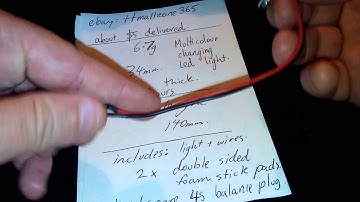 ebay: ttmallzone365
about $5 delivered
6.7g Multicolour
changing
Led light.
24mm.
thick.
ours
140mm.
includes: light + wires.
2x double sided
foam stick pads
4s balance plug.